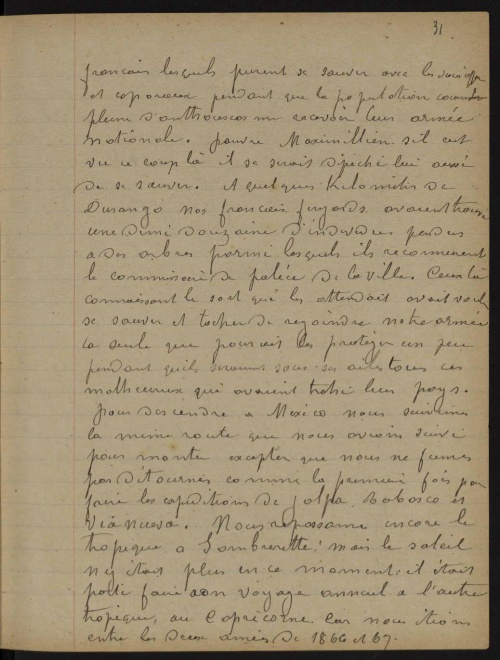 31
francais lesquels purent se sauver avec les
et caporeaux pendant que la population
pleine d'anthousiasme recevoir leur armée
nationale. pauvre Maximillien s'il eut
vu ce coup là il se serais dépéché lui aussi
de se sauver. A quelques Kilometres de
Durango nos francais fuyards avaient trouvé
une demi douzaine d'individus pendus
a des arbres parmi lesquels ils reconnurent
le commissaire de police de la ville. Ceux là
connaissant le sort qui les attendait avait voulu
se sauver et tacher de rejoindre notre armée
la seule que pouvait les protéger un peu
pendant qu'ils sous ses ailes tous ces
malheureux qui avaient trahi leur pays.
pour descendre a Mexico nous suivimes
la meme route que nous avions suivi
pour monter excepter que nous ne fumes
pas détournés comme la premiere fois pour
faire les expéditions de Jalpa, Tabasco et
Vianueva. Nous repassame encore le
tropique a Sombrerette; mais le soleil
n'y était plus en ce moment; il était
parti faire son voyage annuel a l'autre
tropique, au Capricorne. Car nous étions
entre les deux années de 1866 et 67.